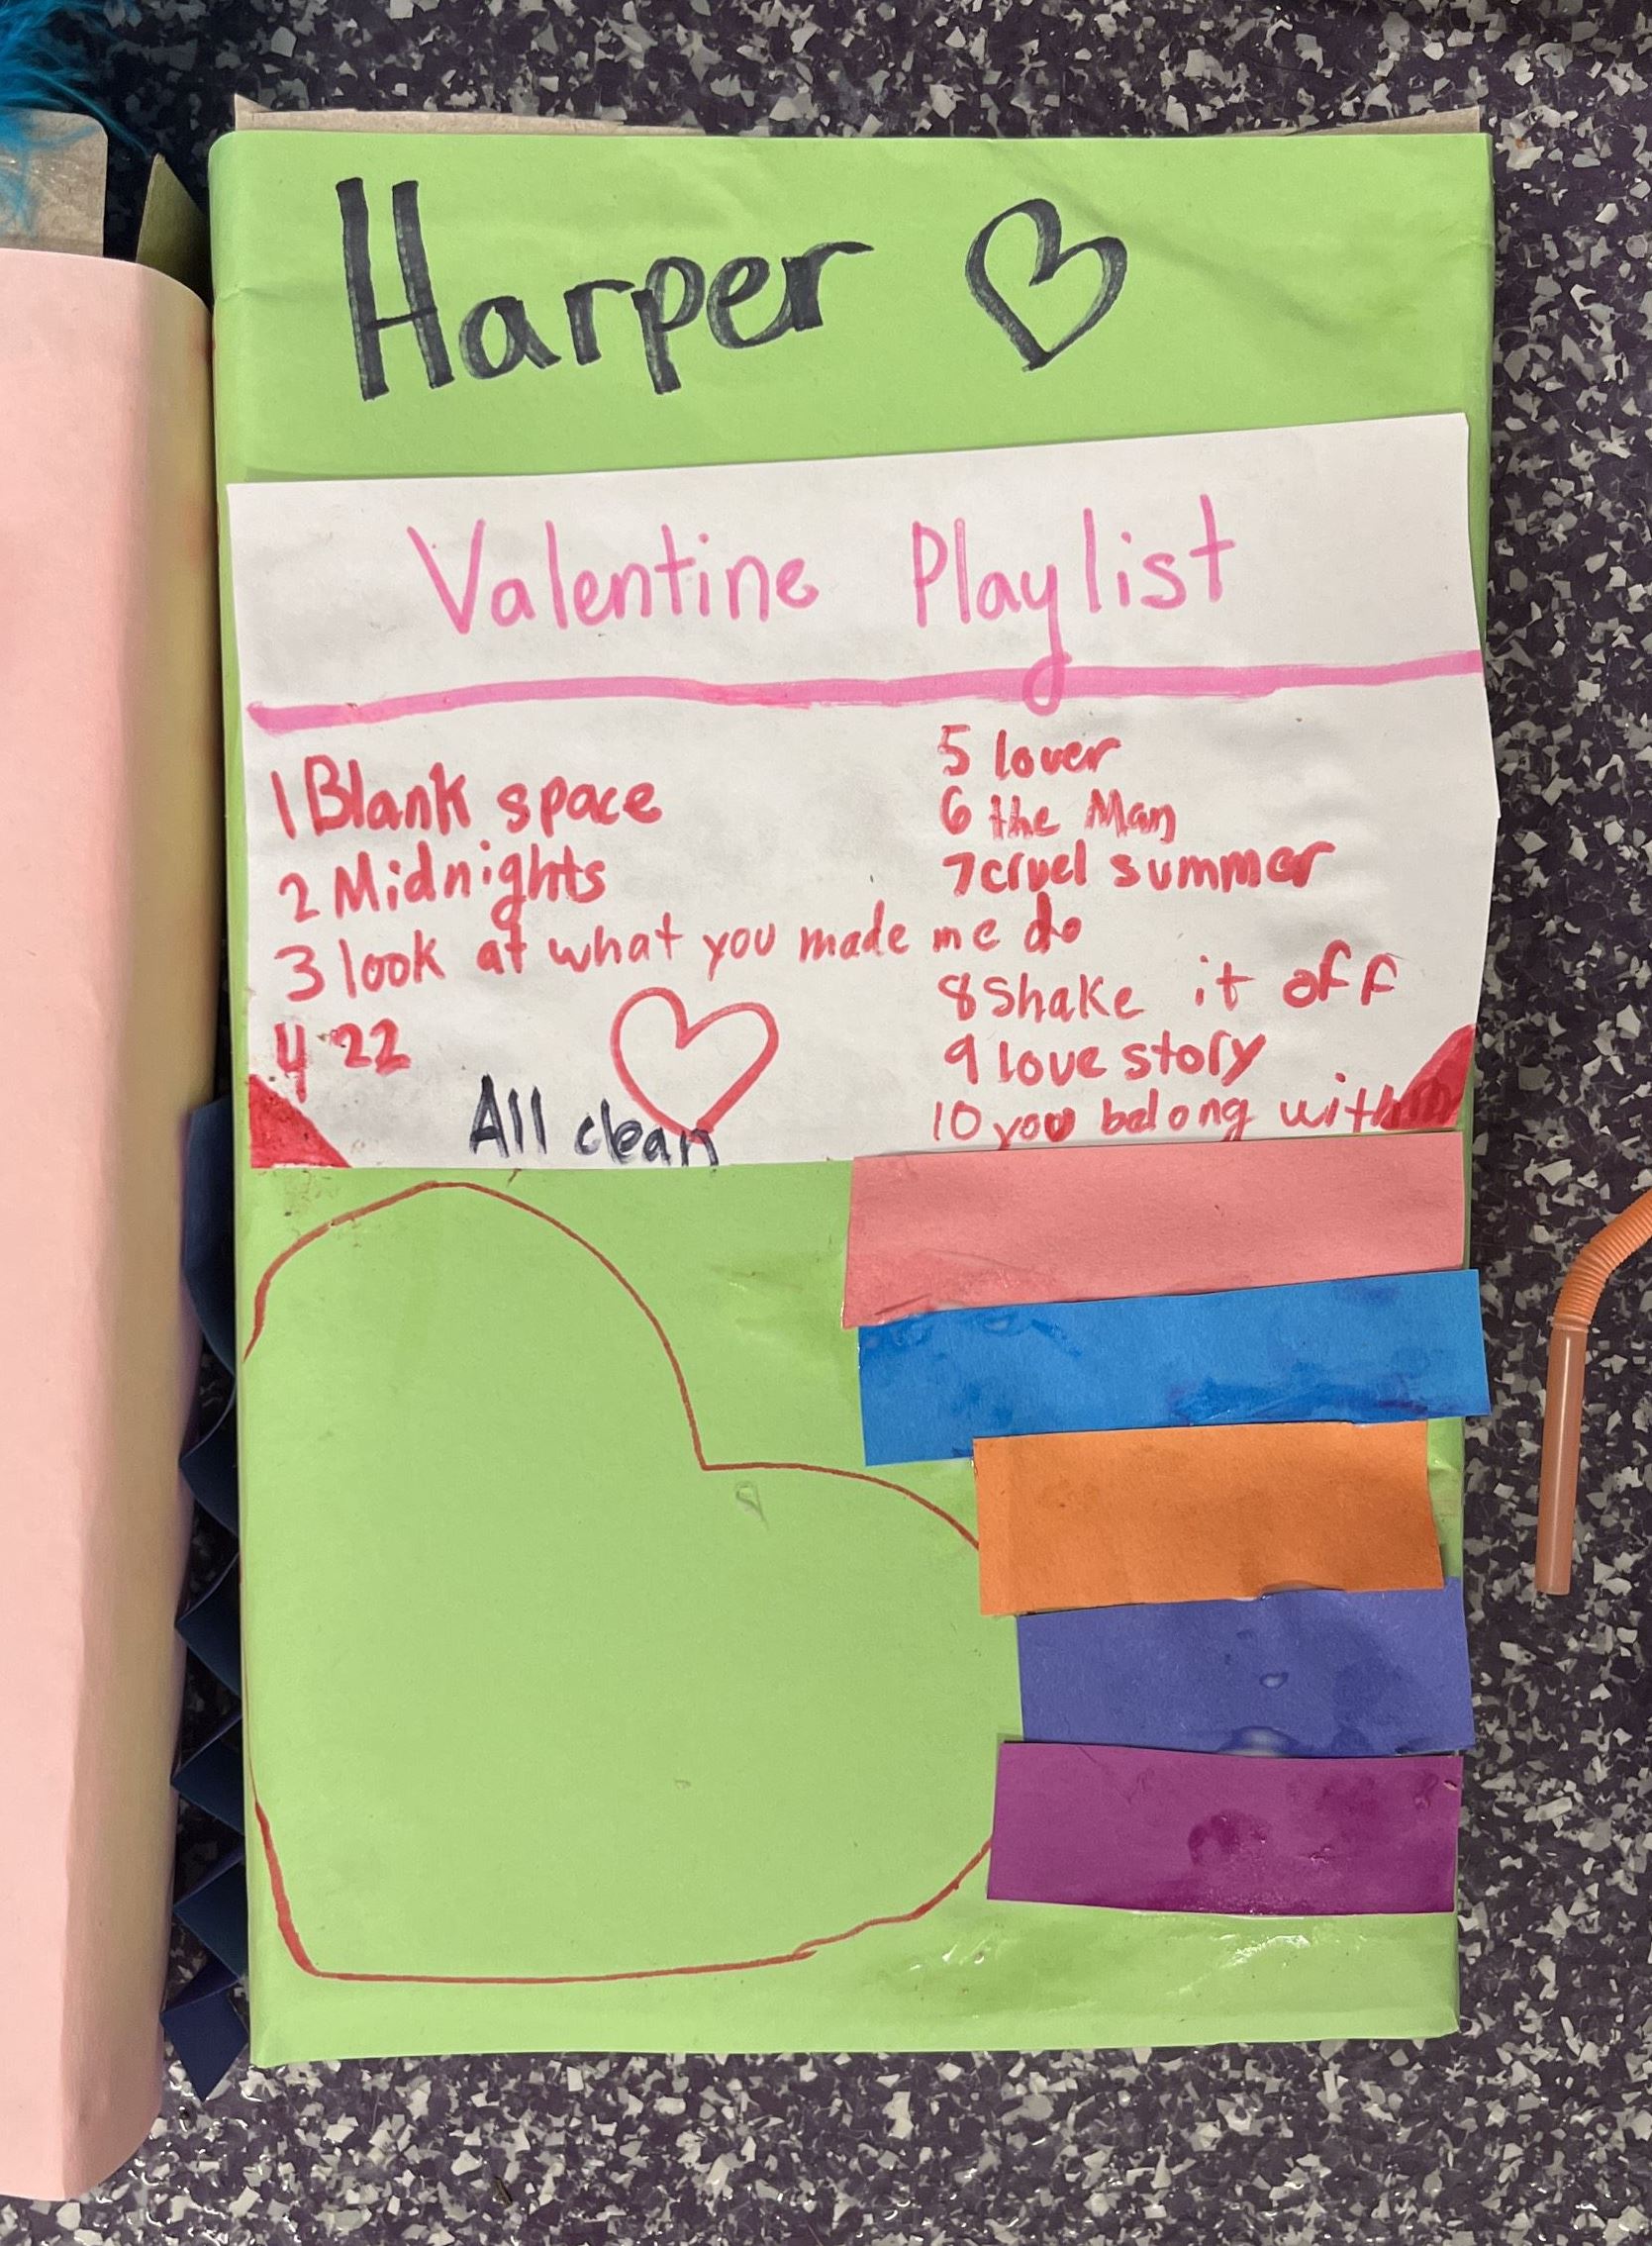 Harper
Valentine Playlist
1 Blank space
2 Midnights
3 look at what you made me do
4 22
All clean
5 lover
6 the Man
7 cruel summer
8 Shake it off
9 love story
10 you belong with